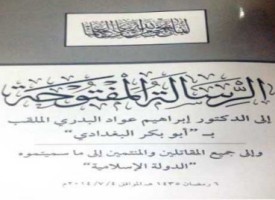 الرسالة المفتوحة
إلى الدكتور إبراهيم عواد البدري الملقب
بـ "أبو بكر البغدادي"
وإلى جميع المقاتلين والمنتمين إلى ما سميتموه
"الدولة الإسلامية"
٦ رمضان ١٤٣٥ هـ الموافق ٢٠١٤/٧/٤م